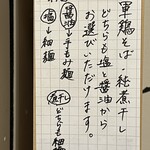 軍鶏そば・純煮干し
どちらも塩と醤油から
お選びいただけます。
醤油→手もみ麺
塩→細麺
煮干し
どちらも細麺